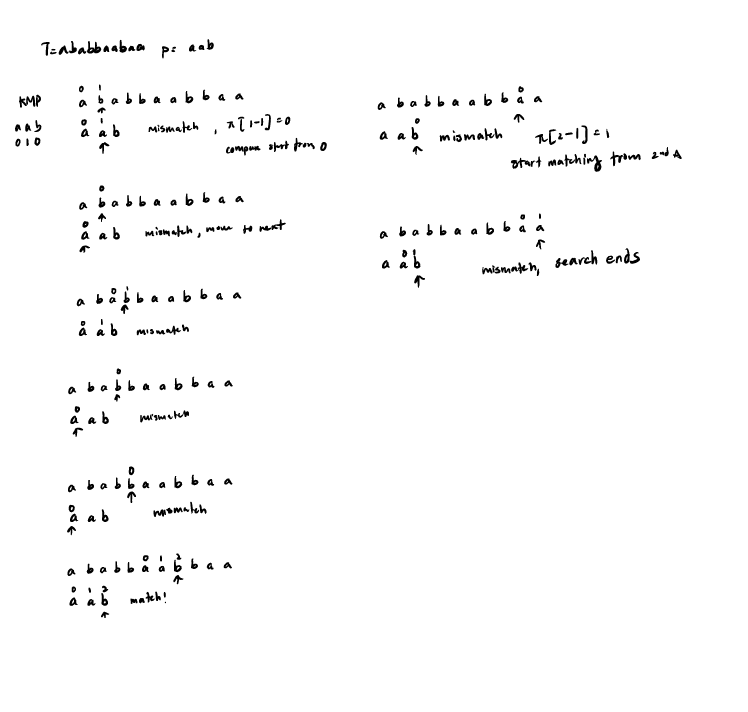 T=ababbaabaa p= aab
KMP
aab
010
0 1
a b a b b a a b b a a
0 1
a a b mismatch, π[1-1]=0
compare start from 0
0
a b a b b a a b b a a
0
a a b mismatch, move to next
0 1
a b a b b a a b b a a
0 1
a a b mismatch
0
a b a b b a a b b a a
0
a a b mismatch
0
a b a b b a a b b a a
0
a a b mismatch
0 1 2
a b a b b a a b b a a
0 1 2
a a b match!
0
a b a b b a a b b a a
0
a a b mismatch π[2-1]=1
start matching from 2nd A
0 1
a b a b b a a b b a a
0 1
a a b mismatch, search ends